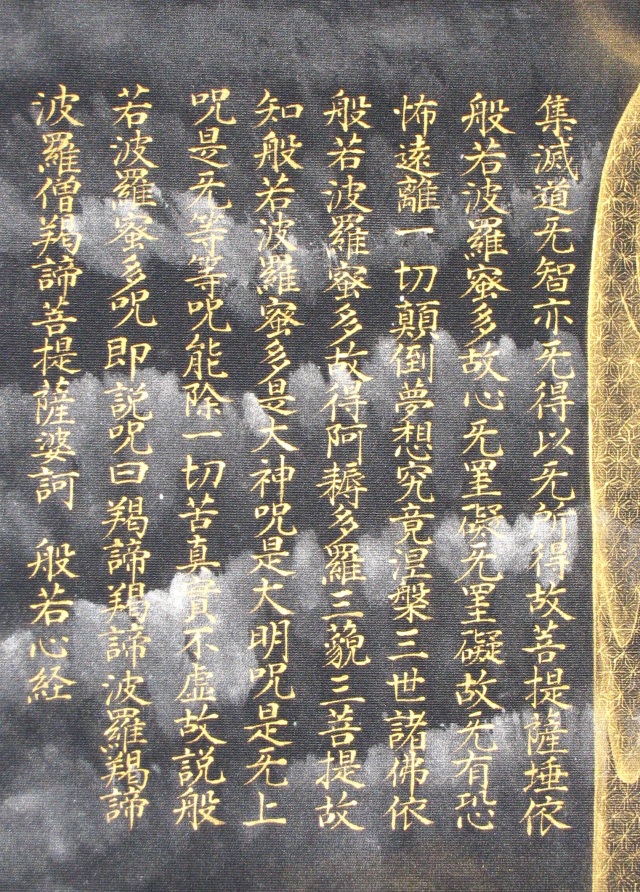 集滅道无智亦无得以无所得故菩提薩埵依
般若波羅蜜多故心无罣礙无罣礙故无有恐
怖遠離一切顛倒夢想究竟涅槃三世諸佛依
般若波羅蜜多故得阿耨多羅三藐三菩提故
知般若波羅蜜多是大神呪是大明呪是无上
呪是无等等呪能除一切苦真實不虚故説般
若波羅蜜多呪即説呪曰羯諦羯諦波羅羯諦
波羅僧羯諦菩提薩婆訶　般若心経